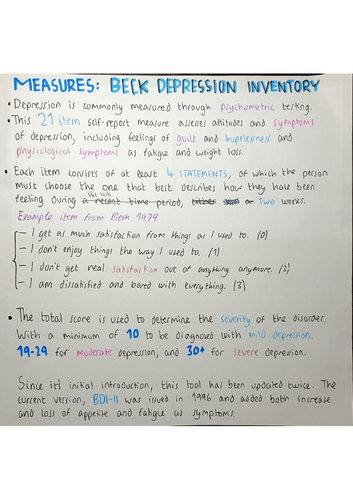 MEASURES: BECK DEPRESSION INVENTORY
• Depression is commonly measured through psychometric testing.
• This 21 item self-report measure assesses attitudes and symptoms
of depression, including feelings of guilt and hopelessness and
physiological symptoms as fatigue and weight loss.
• Each item consists of at least 4 STATEMENTS, of which the person
must choose the one that best describes how they have been
feeling during a recent time period, either or TWO weeks.
the last
Example item from Beck 1979
— I get as much satisfaction from things as I used to. (0)
— I don't enjoy things the way I used to. (1)
— I don't get real satisfaction out of anything anymore. (2)
— I am dissatified and bored with everything. (3)
• The total score is used to determine the severity of the disorder.
With a minimum of 10 to be diagnosed with mild depression,
19-29 for moderate depression, and 30+ for severe depression.
Since it's initial introduction, this tool has been updated twice. The
current version, BDI-II was issued in 1996 and added both increase
and loss of appetite and fatigue as symptoms.